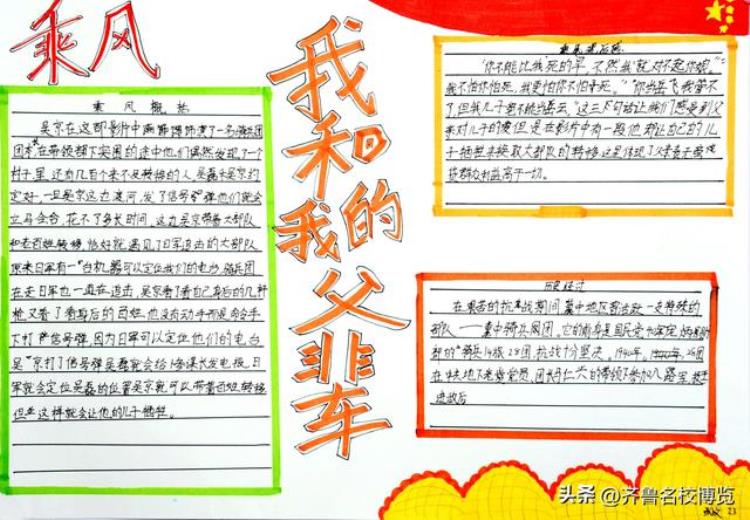 乘风
我和我的父辈
乘风概括
吴京在这部影片中
团长在带领部下突围的途中他们偶然发现了一个
村子里,还有几百个来不及转移的人,吴磊和吴京约
定好,一旦吴京这边渡河,发了信号弹他们就会
立马会合,花不了多长时间,这边吴京带着大部队
和老百姓转移,恰好就遇见了日军追击的大部队
原来日军有一台机器可以定位我们的电台,骑兵团
在走日军也一直在追击,吴京看了看自己身后的几杆
枪又看了看身后的百姓,他没有动手而是命令手
下打信号弹,因为日军可以定位他们的电台
吴京打了信号弹吴磊就会给参谋长发电报,日
军就会定位吴磊的位置吴京就可以带着百姓转移
但是这样就会让他的儿子牺牲。
乘风观后感
“你不能比我死的早,不然我就对不起你娘”“
我不怕你怕死,我更怕你不怕死。”“你当岳飞我管不
了,但我儿子绝不能当岳云”这三句话让我们感受到父
亲对儿子的爱但是在影片中有一段他却让自己的儿
子牺牲来换取大部队的转移这是体现了父亲
群众利益高于一切。
历史经过
在艰苦的抗战期间冀中地区活跃一支特殊的
部队——冀中骑兵团。它的前身是国民党
部的“骑兵14旅28团,抗战十分坚决。1940年,
在中共地下老党员,团长马仁兴的带领下参加八路军,
进敌后
头条 @齐鲁名校博览
23